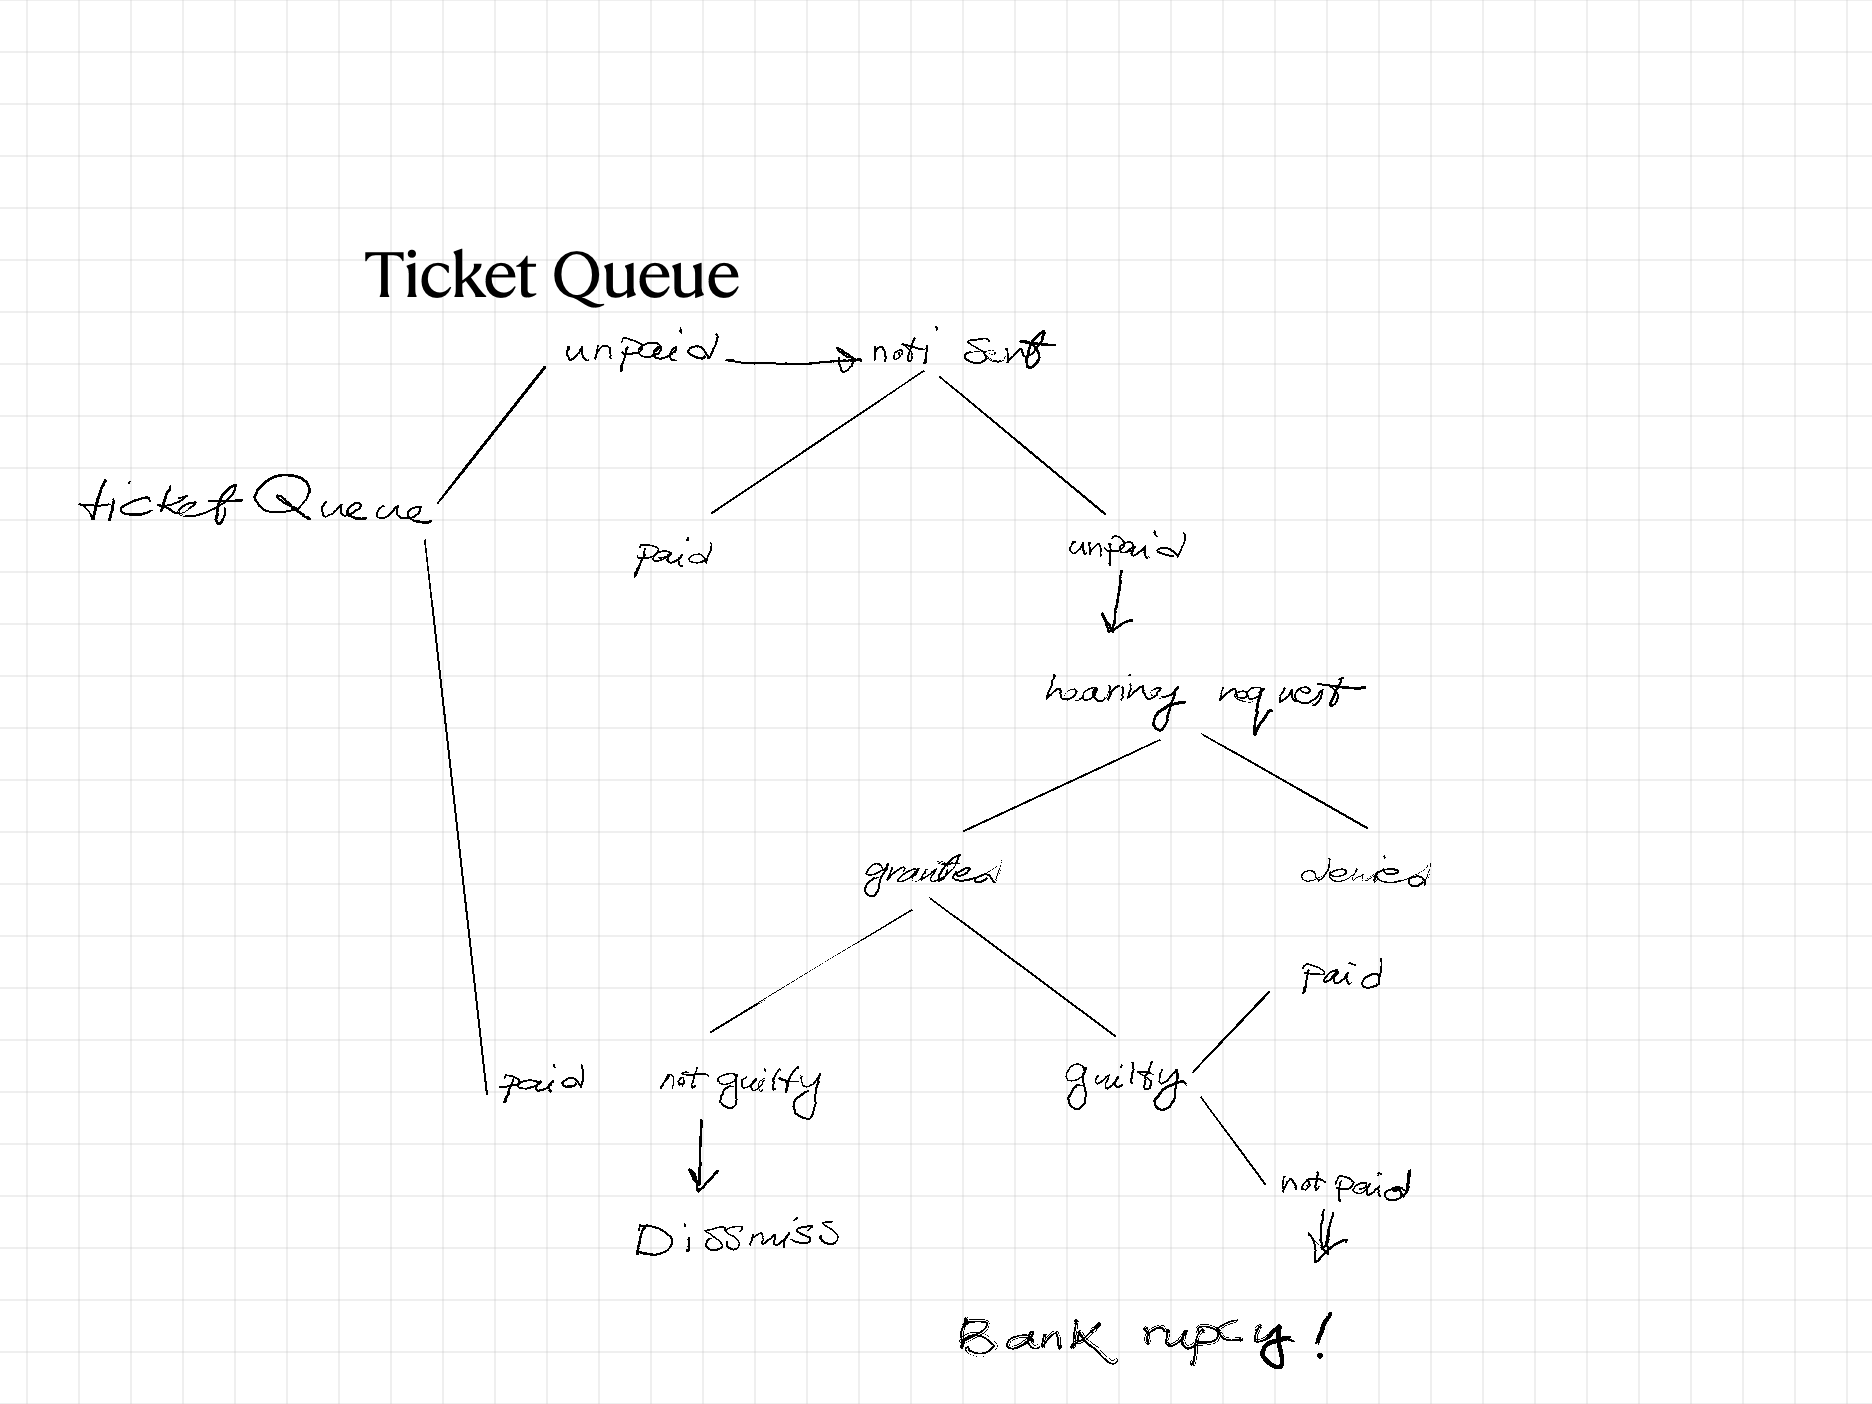 Ticket Queue
unpaid noti sent
ticket Queue
paid unpaid
hearing request
granted denied
paid
paid not guilty guilty
not paid
Dissmiss
Bank rupcy!